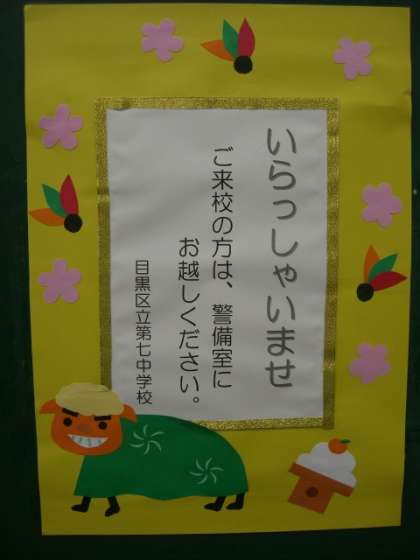 いらっしゃいませ
ご来校の方は、警備室に
お越しください。
目黒区立第七中学校